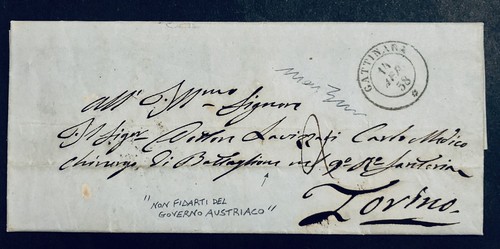 GATTINARA
14
APR
58
All' Illmo Signore
Il Sigr Dottore Carlo Medico
Chirurgo di Battaglione nel 9º Fanteria
Torino
"NON FIDARTI DEL
GOVERNO AUSTRIACO"